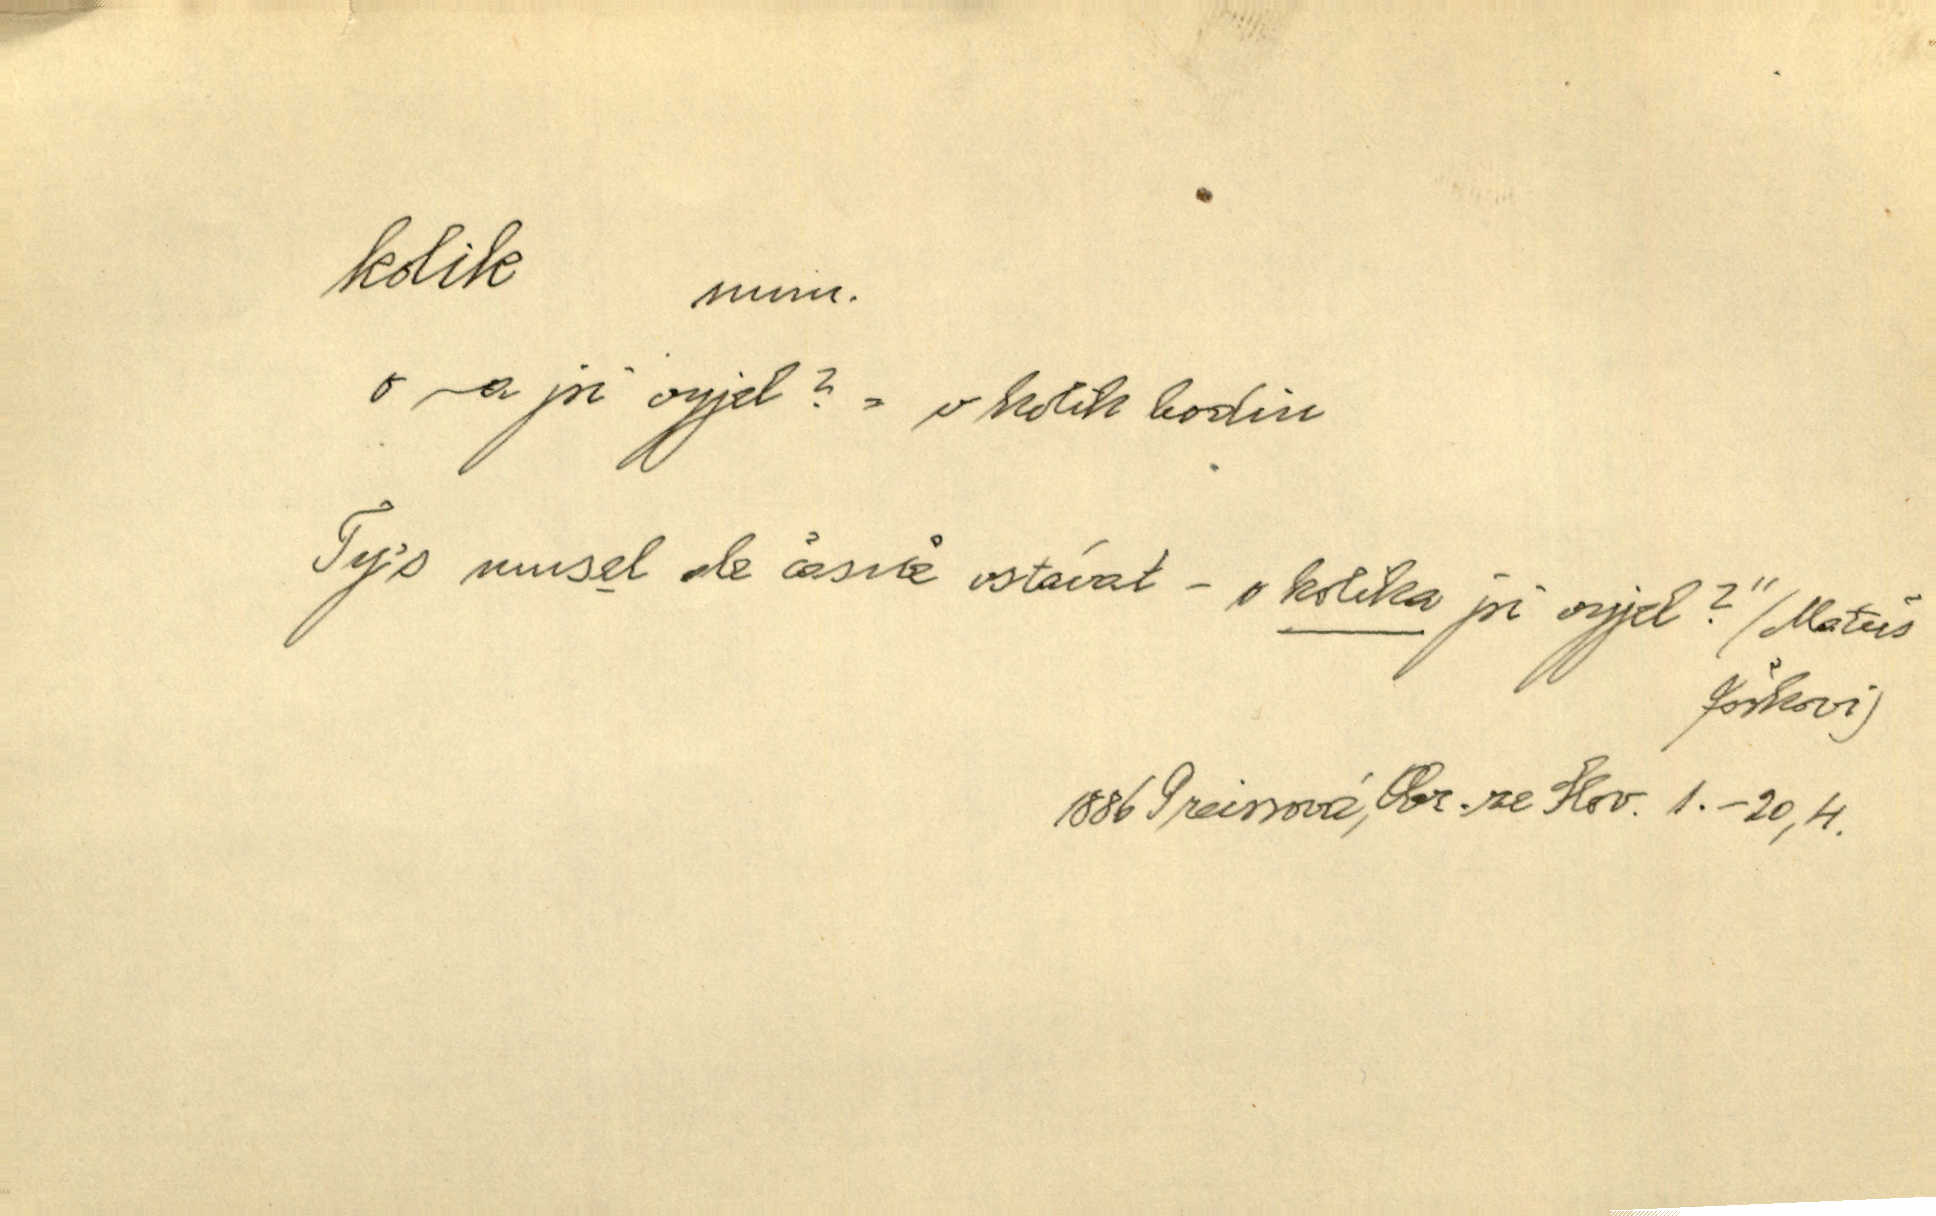 kolik num.
o ~a jsi vyjel? = v kolik hodin
Ty's musel ale časně vstávat - o kolika jsi vyjel?" (Matúš
Jóškovi)
1886 Preissová, Obr. ze Slov. 1. - 20, 4.